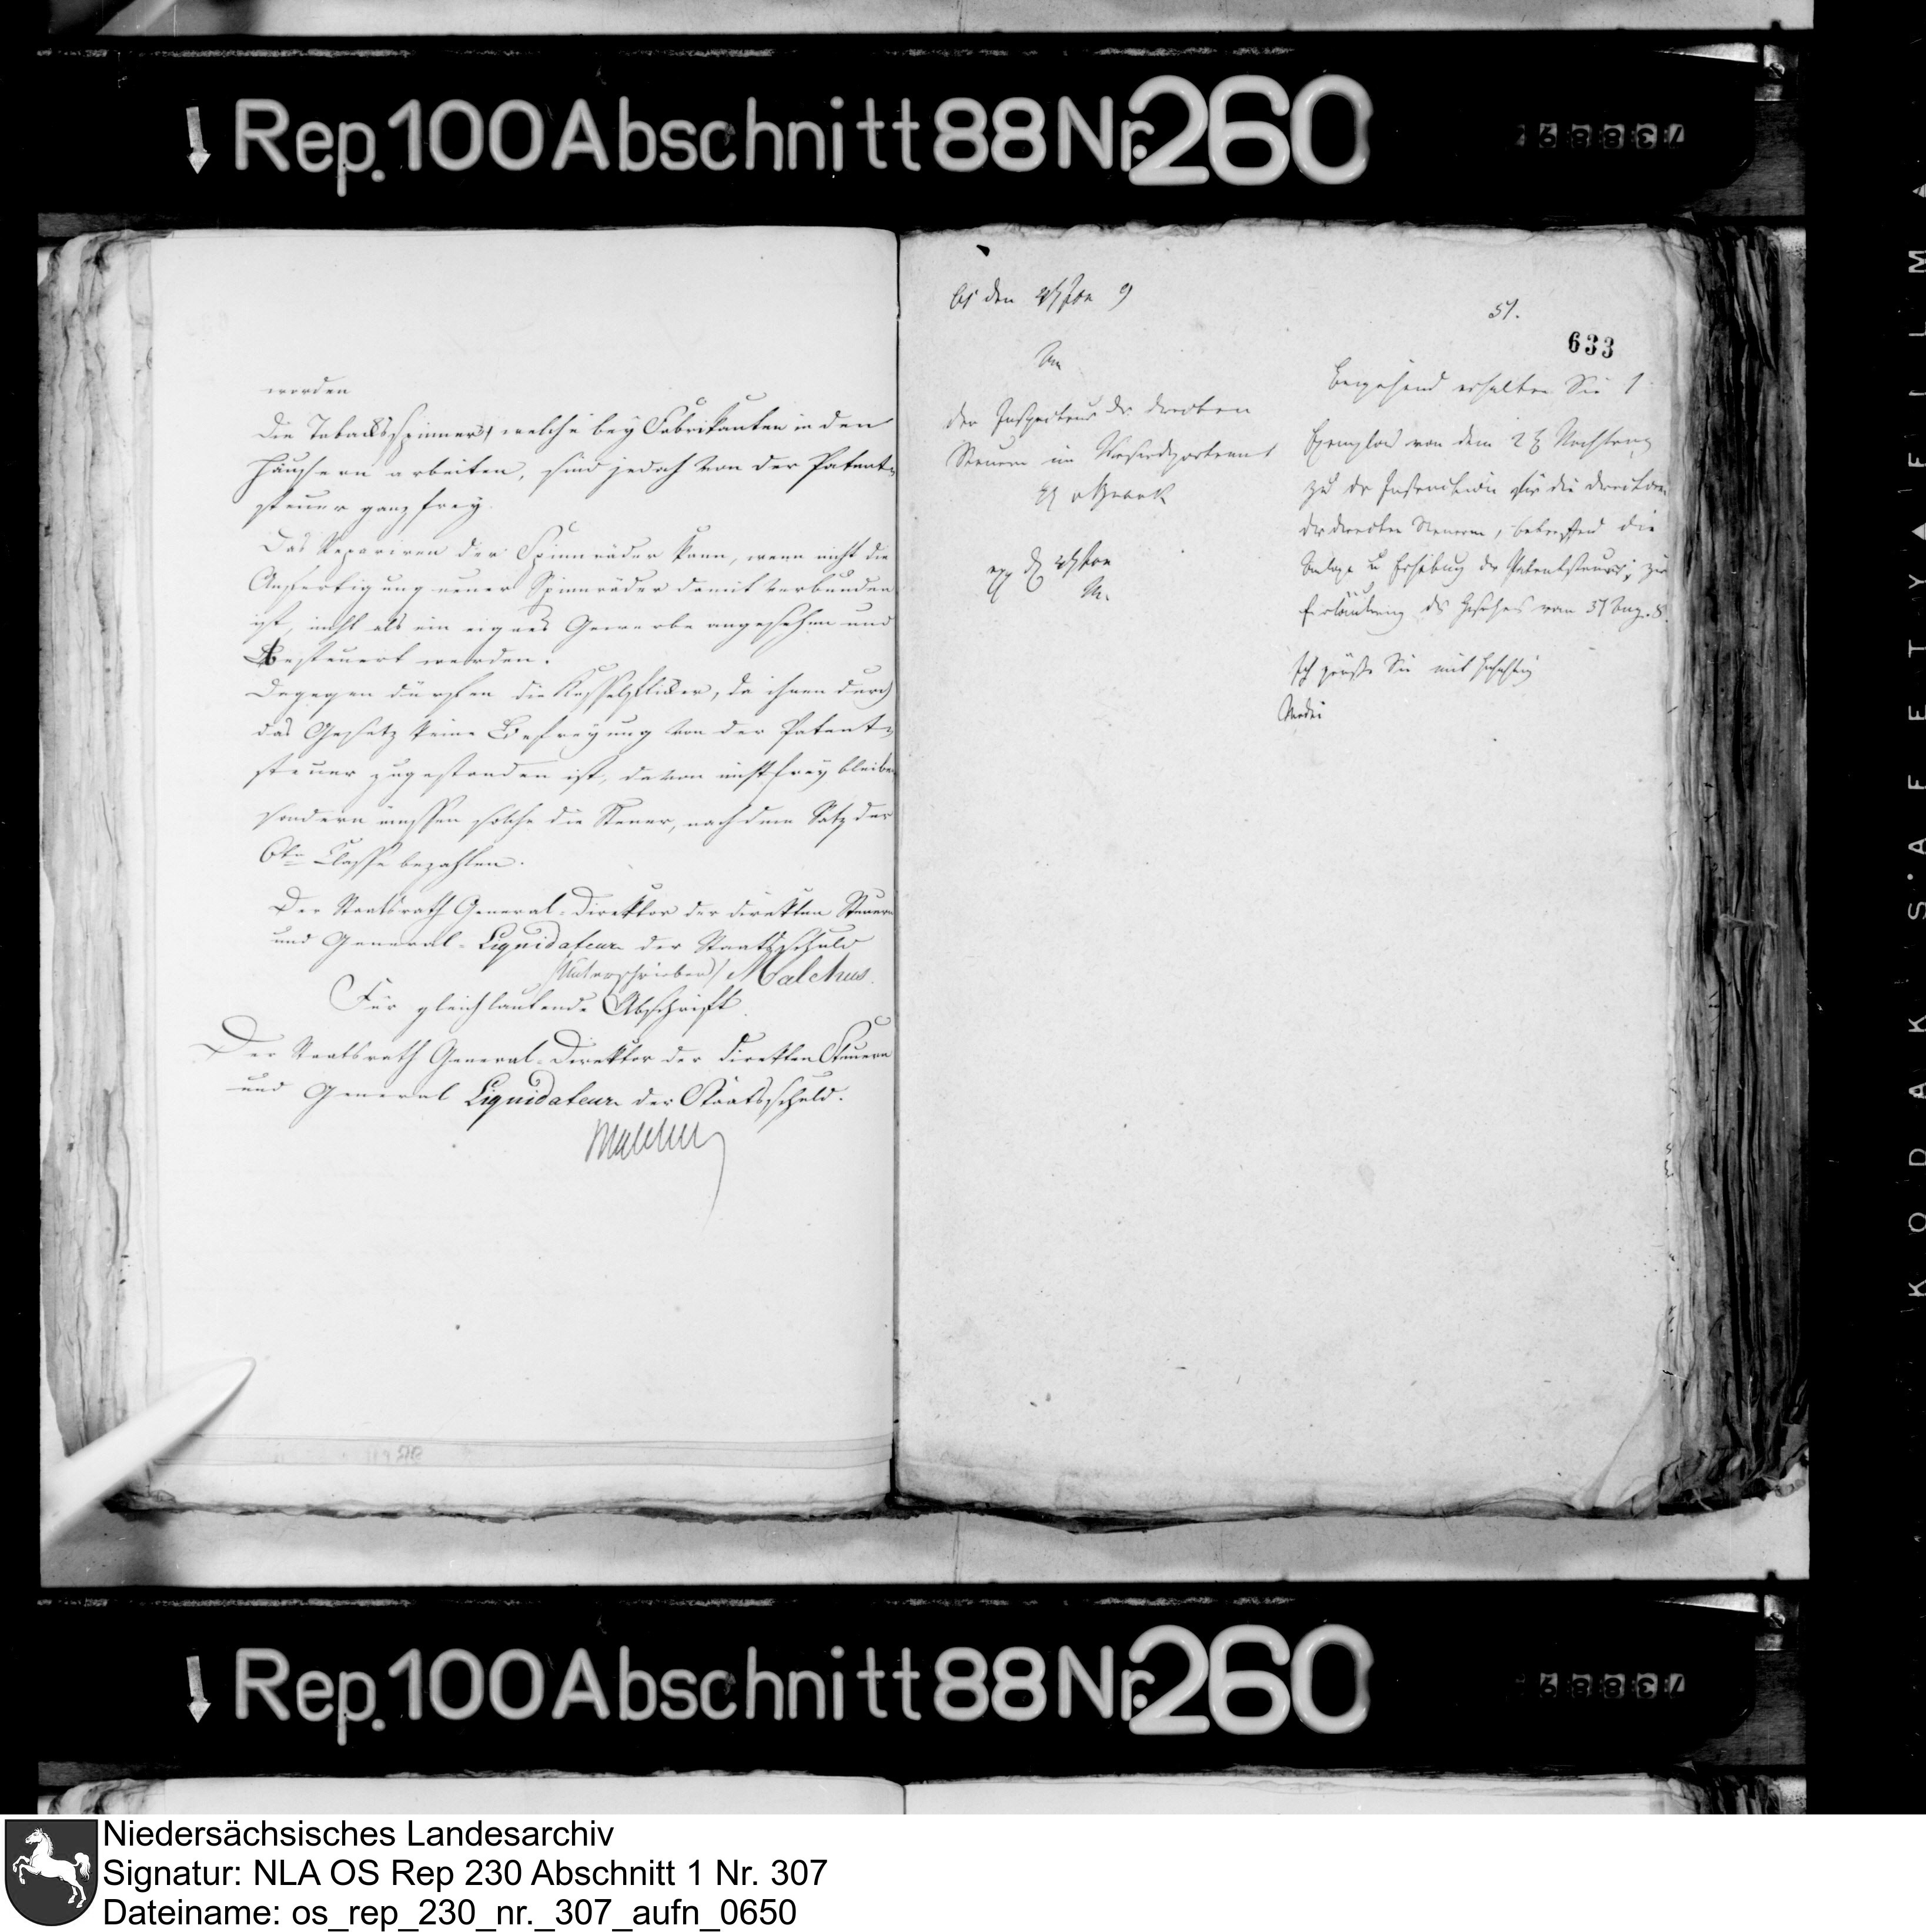 Rep. 100 Abschnitt 88 Nr. 260
73889
worden
Die Tabacksspinner, welche bey Fabrikanten in den
Häusern arbeiten, sind jedoch von der Patent-
steuer ganz frey.
Das Repariren der Spinnräder kann, wenn nicht die
Anfertigung neuer Spinnräder damit verbunden
ist, nicht als ein eignes Gewerbe angesehen und
besteuert werden.
Dagegen dürfen die Kesselflicker, da ihnen durch
das Gesetz keine Befreyung von der Patent-
steuer zugestanden ist, davon nicht frey bleiben
sondern müssen solche die Steuer, nach dem Satz der
6ten Classe bezahlen.
Der Staatsrath General-Direktor der direkten Steuern
und General-Liquidateur der Staatsschuld
(Unterschrieben) Malchus.
Für gleichlautende Abschrift.
Der Staatsrath General-Direktor der direkten Steuern
und General Liquidateur der Staatsschuld.
Malchus
den 9
An
den Inspecteur der directen
Steuern im Weserdepartement
51.
633
erhalten Sie 1
Exemplar von dem 2 Nachtrag
zu der Instruction für die Directoren
der directen Steuern, betreffend die
Anlage u Erhebung der Patentsteuer, zur
Erläuterung des Gesetzes vom 5 Aug. 8.
Ich grüße Sie mit Hochachtung
KODAK S'AFETY▲FILM▲
Rep. 100 Abschnitt 88 Nr. 260
73889
Niedersächsisches Landesarchiv
Signatur: NLA OS Rep 230 Abschnitt 1 Nr. 307
Dateiname: os_rep_230_nr._307_aufn_0650